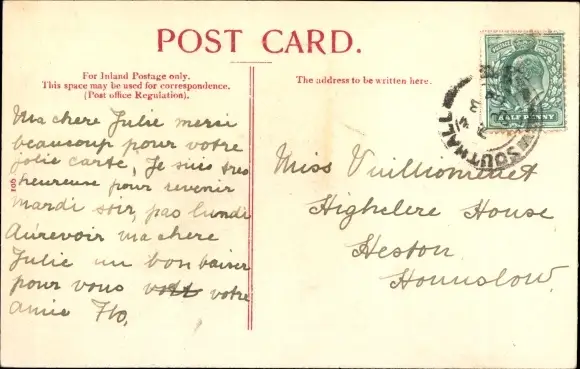 POST CARD.
For Inland Postage only.
This space may be used for correspondence.
(Post office Regulation).
The address to be written here.
HALF PENNY
SOUTHALL
Ma chere Julie merci
beaucoup pour votre
jolie carte, Je suis tres
heureuse pour revenir
mardi soir, pas lundi
Aurevoir ma chere
Julie un bon baiser
pour vous votre
amie Flo,
Miss Vuilliomenet
Highclere House
Heston
Hounslow.